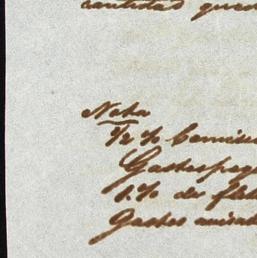 cantidad que
Nota
½ % Comisi
Gastos pag
1 % de flet
Gastos